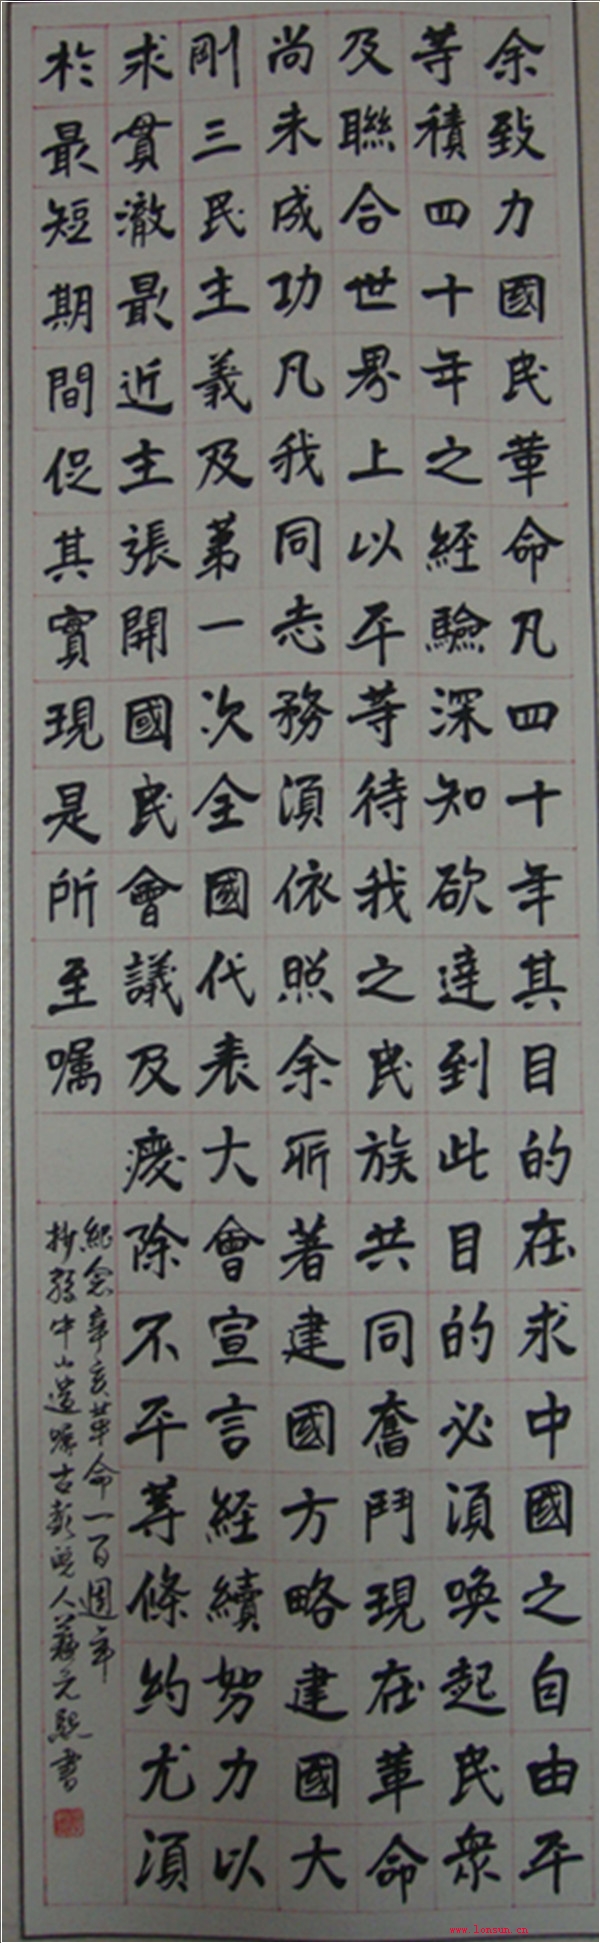 余致力國民革命凡四十年其目的在求中國之自由平
等積四十年之経驗深知欲達到此目的必須喚起民衆
及聯合世界上以平等待我之民族共同奮鬥現在革命
尚未成功凡我同志務須依照余所著建國方略建國大
剛三民主義及第一次全國代表大會宣言経續努力以
求貫澈最近主張開國民會議及廢除不平等條約尤須
於最短期間促其實現是所至嘱
紀念辛亥革命一百週年
抄孫中山遺嘱古彭人元熙書
www.lonsun.cn